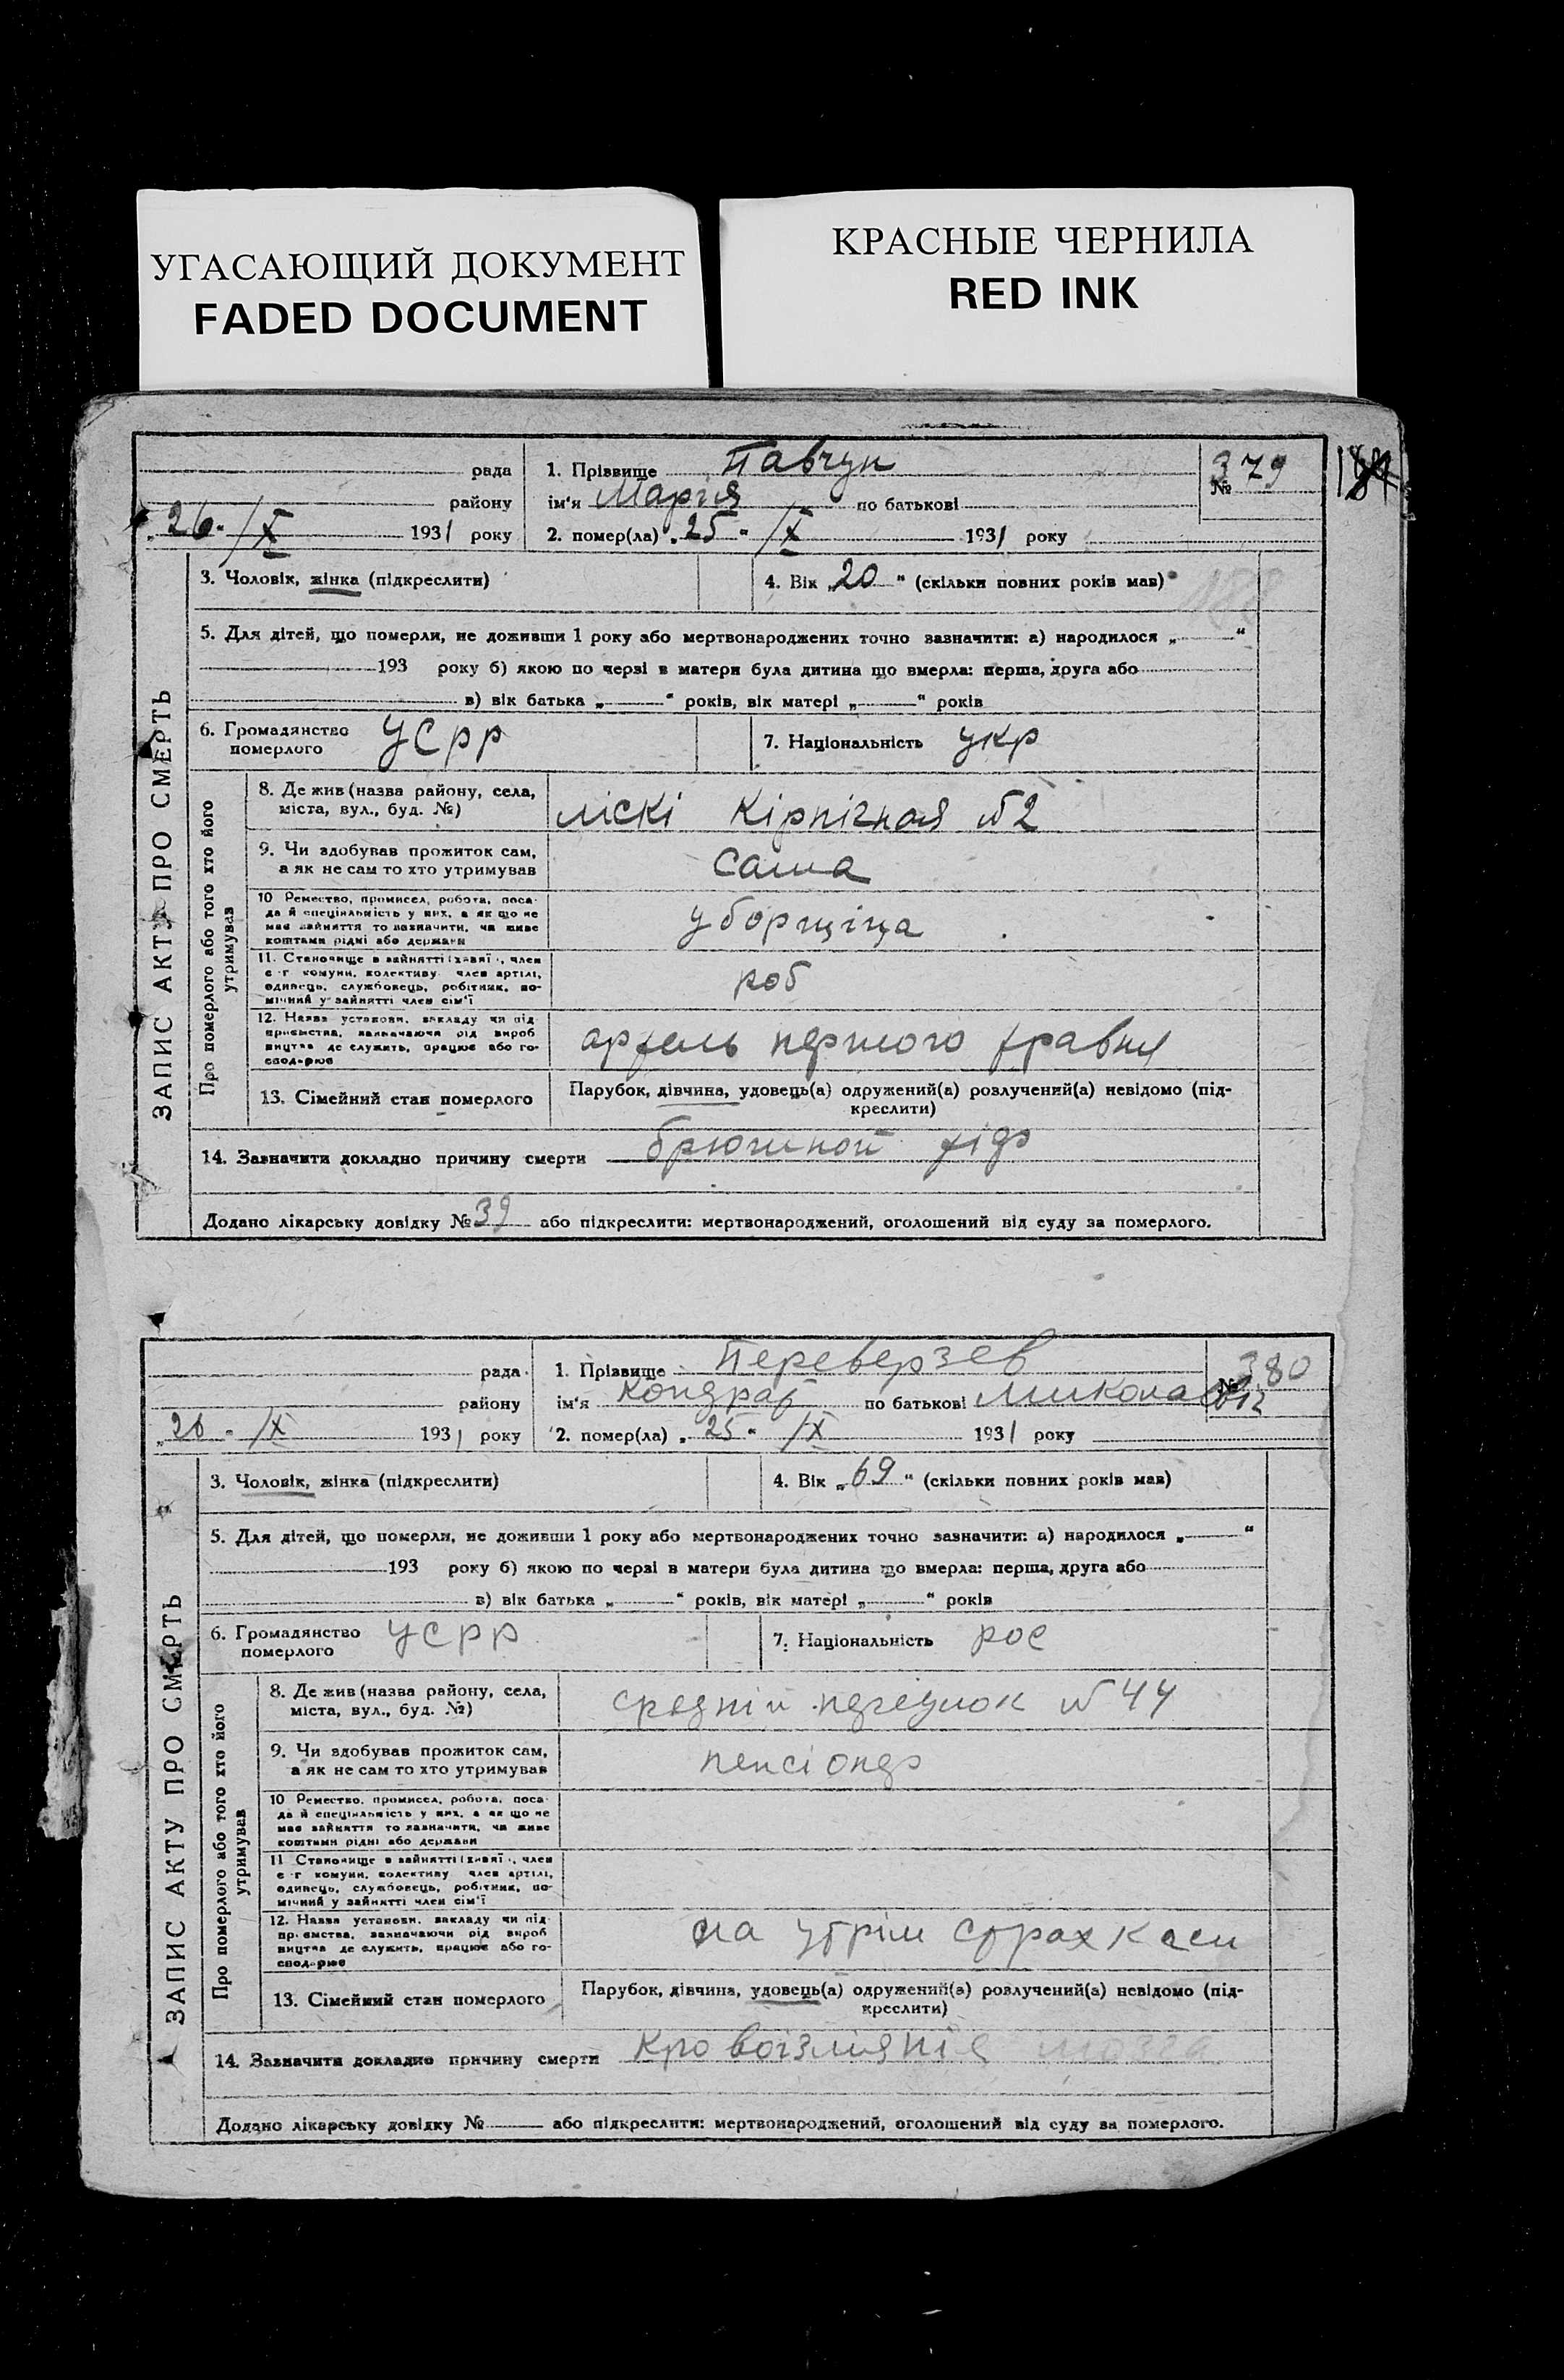 УГАСАЮЩИЙ ДОКУМЕНТ
FADED DOCUMENT
КРАСНЫЕ ЧЕРНИЛА
RED INK
рада
району
26 /IX 1931 року
1. Прізвище Павчун
ім'я Марія по батькові
2. помер(ла) „25“ /IX 1931 року
№ 379
ЗАПИС АКТУ ПРО СМЕРТЬ
3. Чоловік, жінка (підкреслити)
4. Вік „20“ (скільки повних років мав)
5. Для дітей, що померли, не доживши 1 року або мертвонароджених точно зазначити: а) народилося „ “
193 року б) якою по черзі в матери була дитина що вмерла: перша, друга або
в) вік батька „ “ років, вік матері „ “ років
6. Громадянство померлого УСРР
7. Національність укр
Про померлого або того хто його утримував
8. Де жив (назва району, села,
міста, вул., буд. №)
ліскі Кірпічная №2
9. Чи здобував прожиток сам,
а як не сам то хто утримував
сама
10 Ремество, промисел, робота, поса-
да й спеціяльність у них, а як що не
має зайняття то зазначити, чи живе
коштами рідні або держави
уборщіца
11. Становище в зайнятті (хазяї, член
с-г комуни, колективу член артілі,
одинець, службовець, робітник, по-
мічний у зайнятті член сім'ї
роб
12. Назва установи, закладу чи під-
приємства, зазначаючи рід вироб
ництва де служить, працює або го-
сподарює
артель першого травня
13. Сімейний стан померлого
Парубок, дівчина, удовець(а) одружений(а) розлучений(а) невідомо (під-
креслити)
14. Зазначити докладно причину смерти брюшной тіф
Додано лікарську довідку № 39 або підкреслити: мертвонароджений, оголошений від суду за померлого.
рада
району
26 /IX 1931 року
1. Прізвище Переверзев
ім'я Кондрат по батькові Микола
2. помер(ла) „25“ /IX 1931 року
№ 380
ЗАПИС АКТУ ПРО СМЕРТЬ
3. Чоловік, жінка (підкреслити)
4. Вік „69“ (скільки повних років мав)
5. Для дітей, що померли, не доживши 1 року або мертвонароджених точно зазначити: а) народилося „ “
193 року б) якою по черзі в матери була дитина що вмерла: перша, друга або
в) вік батька „ “ років, вік матері „ “ років
6. Громадянство померлого УСРР
7. Національність рос
Про померлого або того хто його утримував
8. Де жив (назва району, села,
міста, вул., буд. №)
средній переулок №44
9. Чи здобував прожиток сам,
а як не сам то хто утримував
пенсіонер
10 Ремество, промисел, робота, поса-
да й спеціяльність у них, а як що не
має зайняття то зазначити, чи живе
коштами рідні або держави
11 Становище в зайнятті (хазяї, член
с-г комуни, колективу член артілі,
одинець, службовець, робітник, по-
мічний у зайнятті член сім'ї
12. Назва установи, закладу чи під-
приємства, зазначаючи рід вироб
ництва де служить, працює або го-
сподарює
на утрім страх каси
13. Сімейний стан померлого
Парубок, дівчина, удовець(а) одружений(а) розлучений(а) невідомо (під-
креслити)
14. Зазначити докладно причину смерти кровоізліяніе мозга
Додано лікарську довідку № або підкреслити: мертвонароджений, оголошений від суду за померлого.